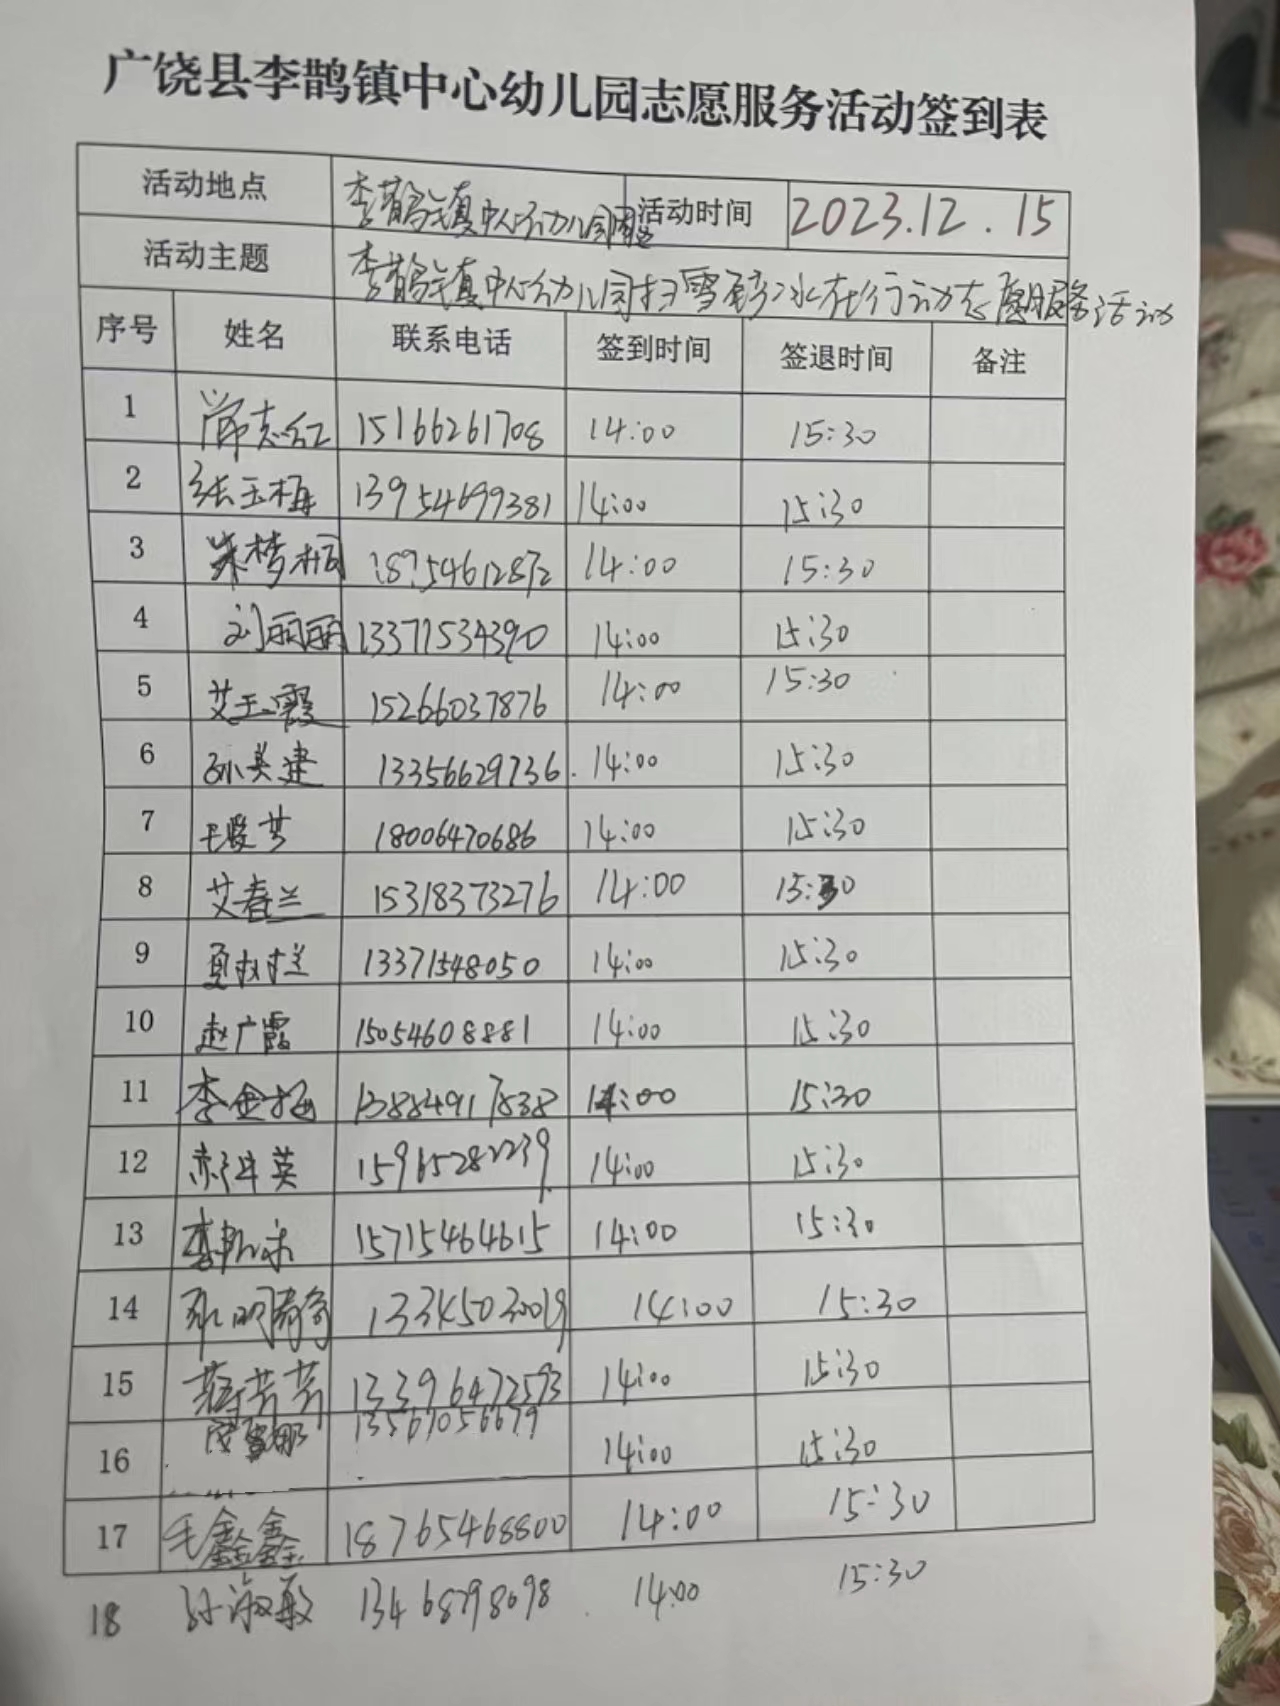 广饶县李鹊镇中心幼儿园志愿服务活动签到表
活动地点 李鹊镇中心幼儿园周边 活动时间 2023.12.15
活动主题 李鹊镇中心幼儿园扫雪除冰在行动志愿服务活动
序号 姓名 联系电话 签到时间 签退时间 备注
1 常志红 15166261708 14:00 15:30
2 张玉梅 13954699381 14:00 15:30
3 朱梦桐 18754612872 14:00 15:30
4 刘丽丽 13371534390 14:00 15:30
5 艾玉霞 15266037876 14:00 15:30
6 孙美建 13356629736 14:00 15:30
7 王爱芳 18006470686 14:00 15:30
8 艾春兰 15318373276 14:00 15:30
9 夏树兰 13371548050 14:00 15:30
10 赵广霞 15054608881 14:00 15:30
11 李金梅 13884917838 14:00 15:30
12 英 15965282239 14:00 15:30
13 15715464615 14:00 15:30
14 14:00 15:30
15 芳芳 13396472593 14:00 15:30
16 13567056679 14:00 15:30
17 毛鑫鑫 18765468800 14:00 15:30
18 孙淑敏 13468798698 14:00 15:30